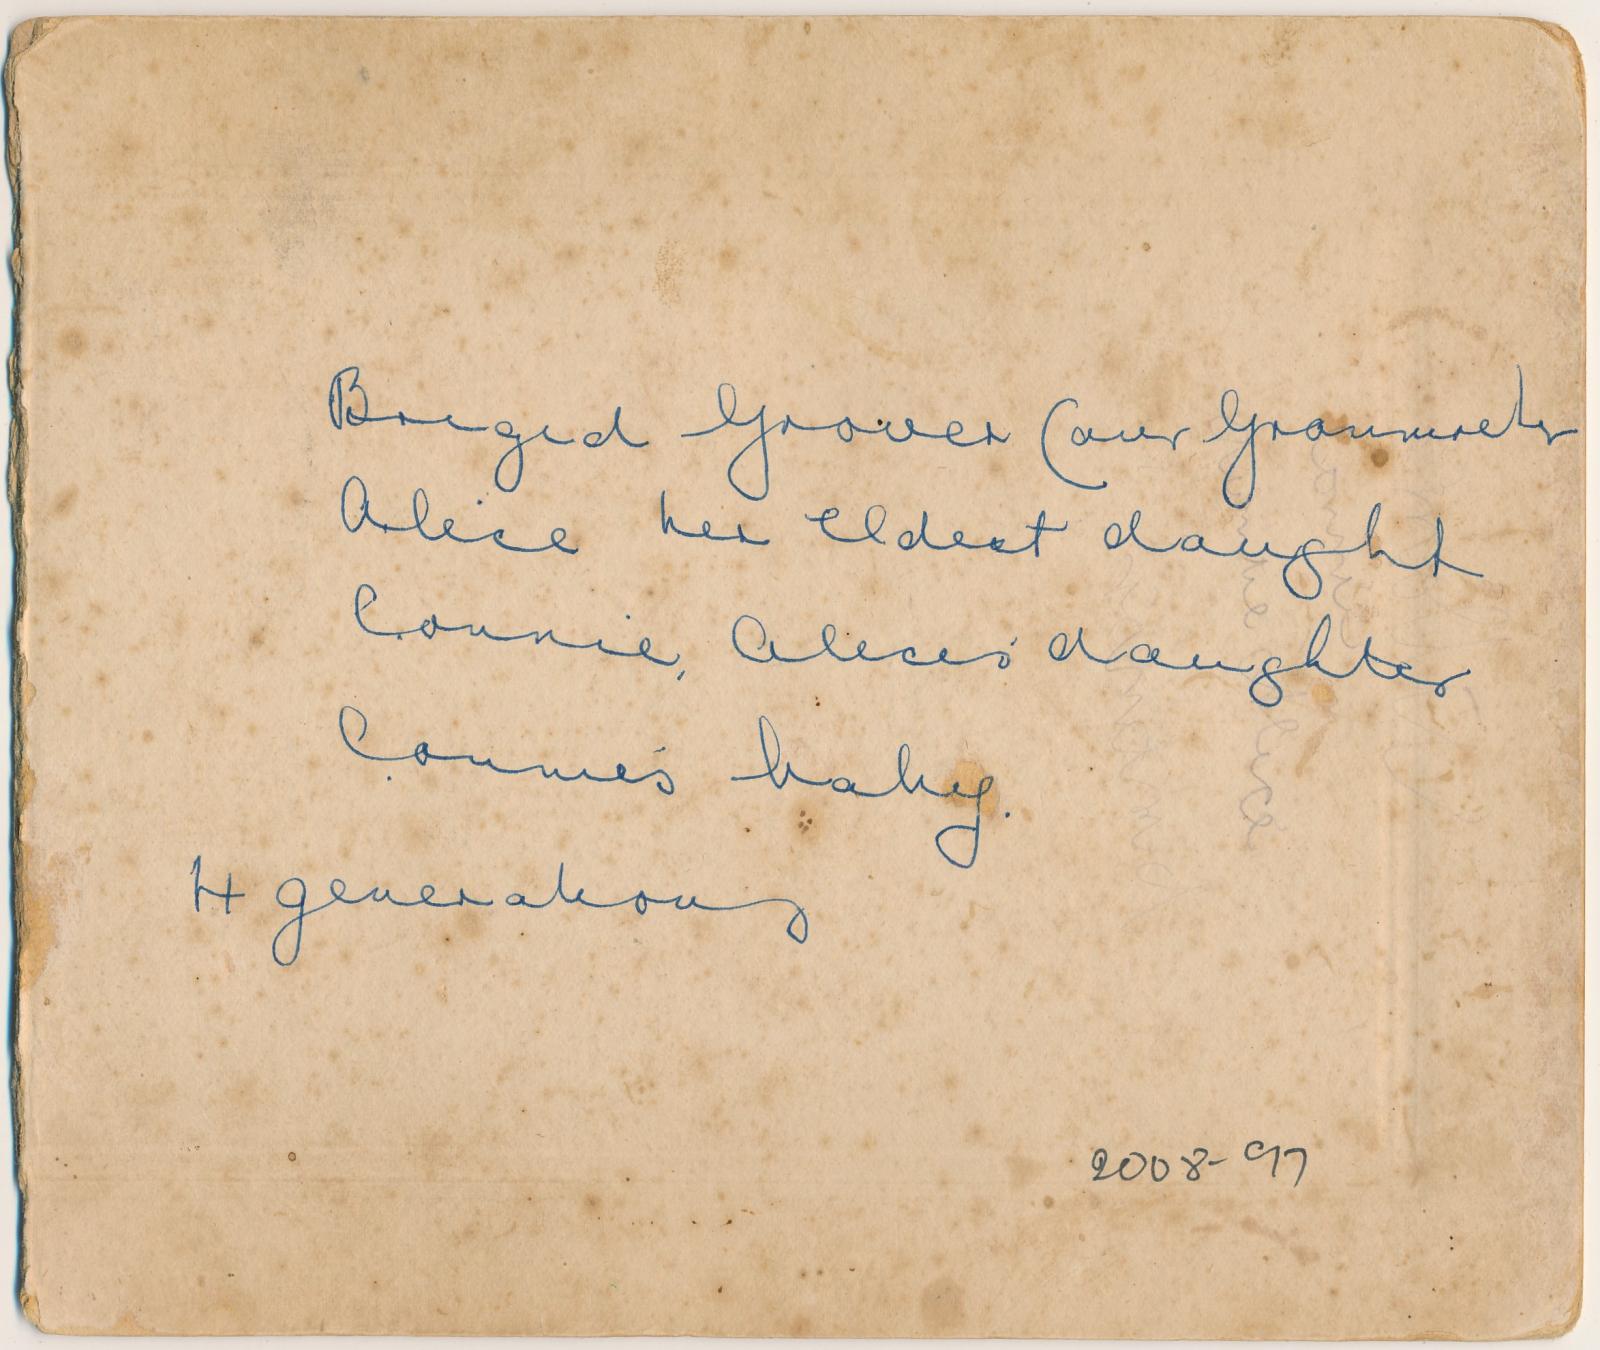 Briged Grover (our Granmother
Alice her Eldest daught
Connie, Alices' daughter
Connie's baby.
4 generations
2008-97